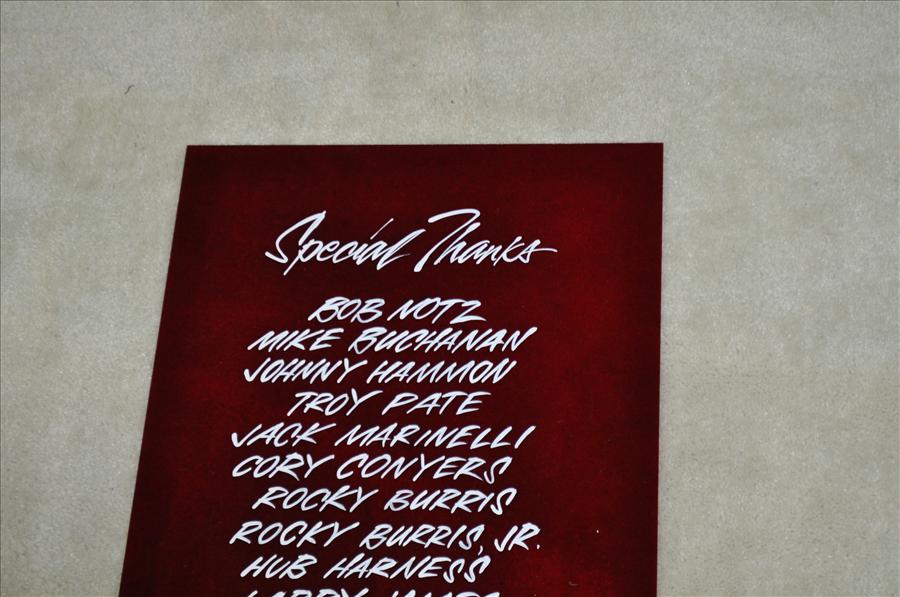 Special Thanks
BOB NOTZ
MIKE BUCHANAN
JOHNNY HAMMON
TROY PATE
JACK MARINELLI
CORY CONYERS
ROCKY BURRIS
ROCKY BURRIS, JR.
HUB HARNESS